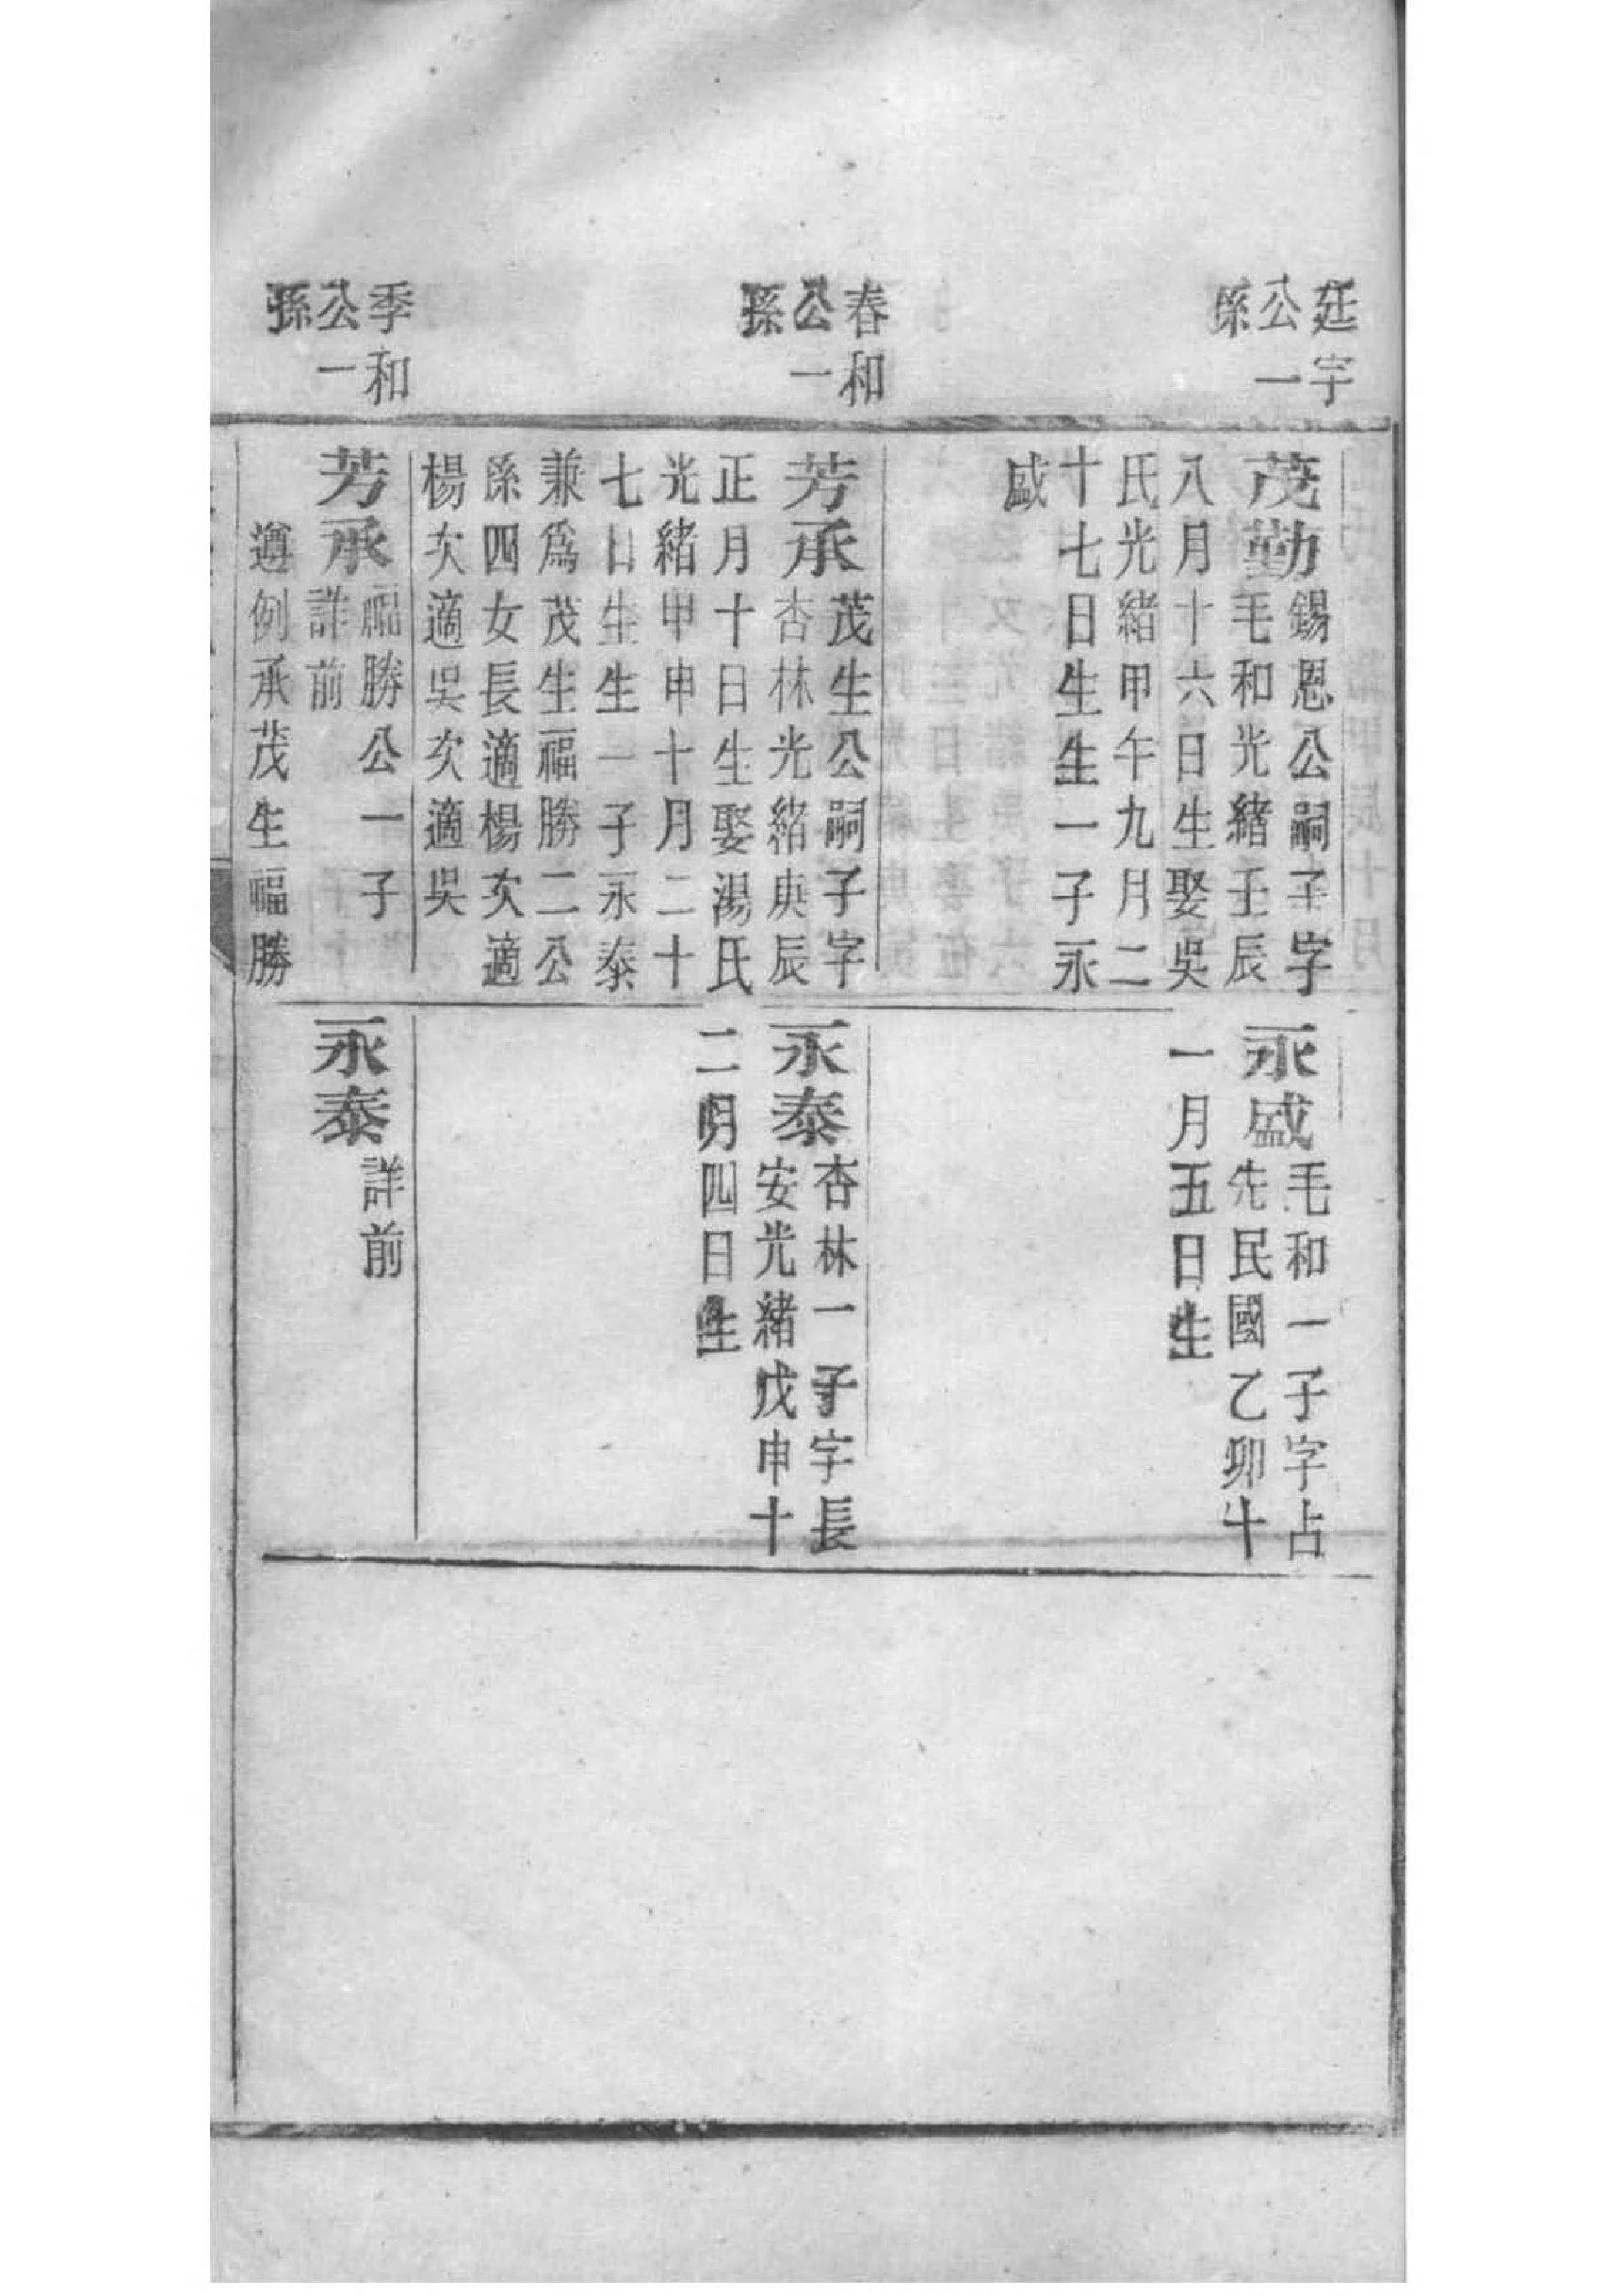 廷宇
公一
孫
茂勤
錫恩公嗣子字
毛和光緒壬辰
八月十六日生娶吳
氏光緒甲午九月二
十七日生生一子永
盛
永盛
毛和一子字占
先民國乙卯十
一月五日生
春和
公一
孫
芳承
茂生公嗣子字
杏林光緒庚辰
正月十日生娶湯氏
光緒甲申十月二十
七日生生一子永泰
兼爲茂生福勝二公
孫四女長適楊次適
楊次適吳次適吳
永泰
杏林一子字長
安光緒戊申十
二月四日生
季和
公一
孫
芳承
福勝公一子
詳前
遵例承茂生福勝
永泰
詳前